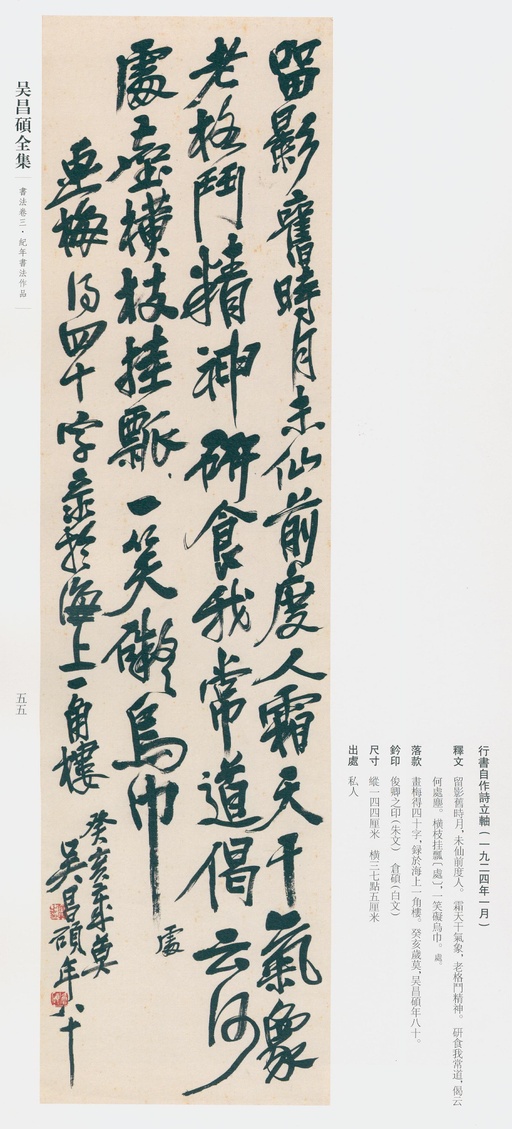 行書自作詩立軸(一九二四年一月)
釋文 留影舊時月,未仙前度人。霜天干氣象,老格鬥精神。研食我常道,偈云
何處塵。橫枝挂瓢〔處〕,一笑礙烏巾。處。
落款 畫梅得四十字,録於海上一角樓。癸亥歲莫,吳昌碩年八十。
鈐印 俊卿之印(朱文) 倉碩(白文)
尺寸 縱一四四厘米 橫三七點五厘米
出處 私人
留影舊時月未仙前度人霜天干氣象
老格鬥精神研食我常道偈云何
處塵橫枝挂瓢一笑礙烏巾 處
畫梅得四十字录於海上一角樓
癸亥歲莫
吳昌碩年八十
吴昌碩全集
書法卷三·紀年書法作品
五五